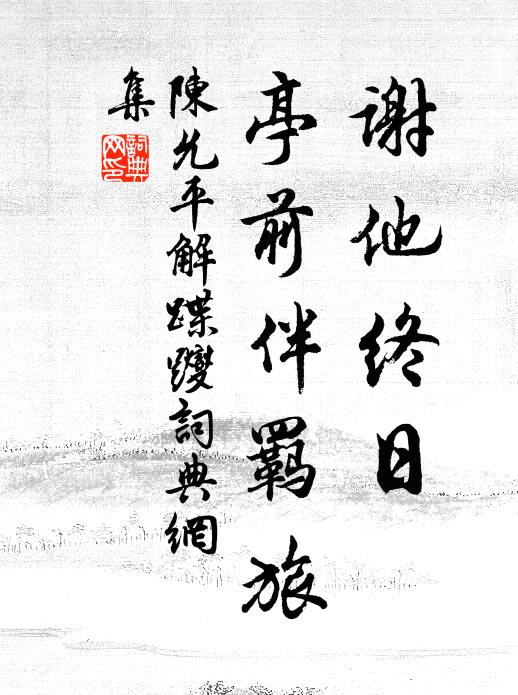 謝他終日
亭前伴羁旅
陳允平解蹀躞詞典網
集
詞典
网印